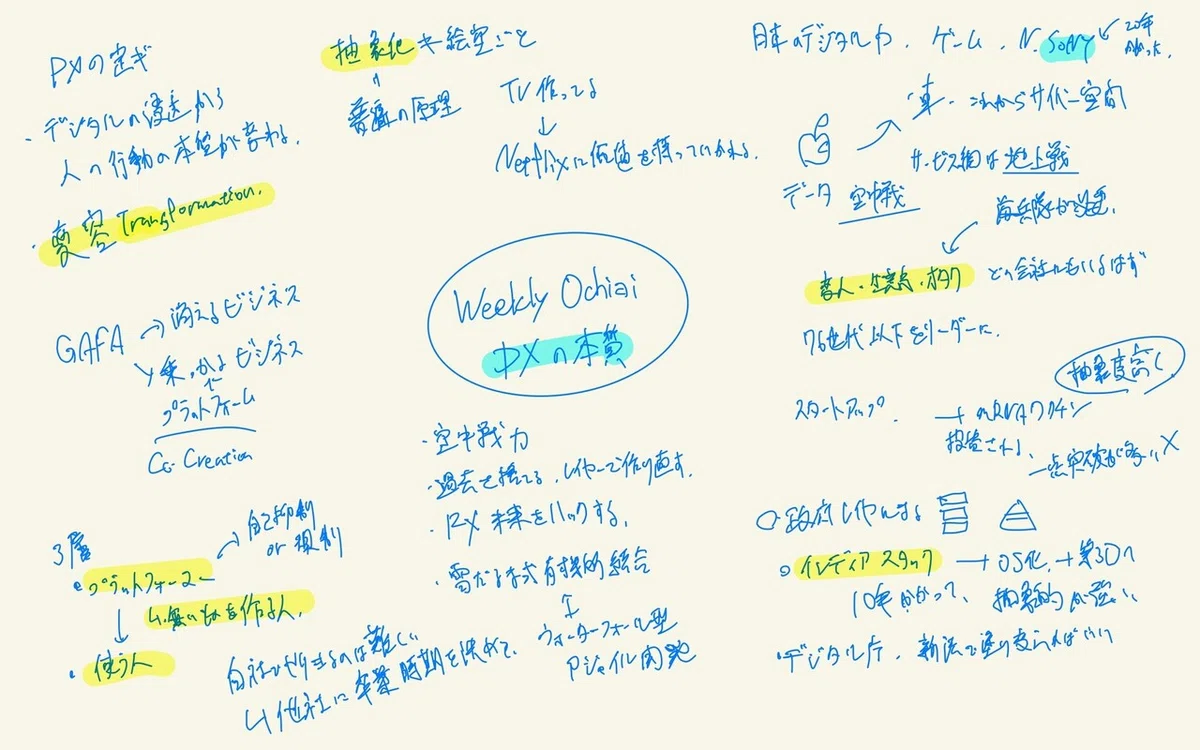 Weekly Ochiai
DXの本質
DXの定ぎ
・デジタルの浸透から
人々の行動の本質が変わる。
・変容 Transformation.
GAFA → 消えるビジネス
乗っかるビジネス
↑
プラットフォーム
Co-Creation
3層
自己抑制
or 規制
・プラットフォーマー
↓
無いものを作る人。
・使う人
抽象化 ≠ 絵空ごと
=
普遍の原理
TV作ってる
↓
Netflixに価値を持っていかれる。
・空中戦力
・過去を捨てる、レイヤーで作り直す。
・DX 未来をハックする。
・雪だるま式有機的結合
↕
ウォーターフォール型
アジャイル開発
自社で
するのは難しい
他社に卒業時期を決めて、
日本のデジタル力、ゲーム、N. SONY ← 20年かかった。
車、これからサイバー空間
サービス網は地上戦
データ 空中戦
が必要。
変人・
・オタク どの会社にもいるはず
76世代以下をリーダーに。
抽象度高く
スタートアップ。 → mRNAワクチン
投資される。
一点突破が多い ×
○政府レイヤー
○インディアスタック → OS化 → 第3Dへ
10年かかって、抽象的が強い
・デジタル庁、新法で塗り変えればいい